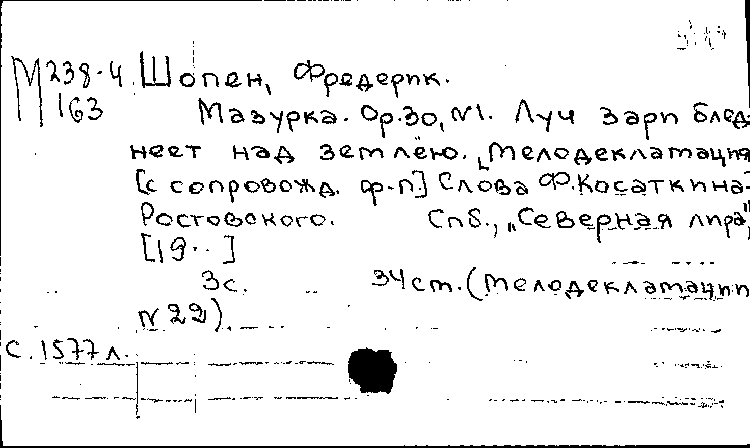 М 238-4 Шопен, Фредерик.
163 Мазурка. Op.30, №1. Луч зари блед-
неет над землёю. [Мелодекламация
[с сопровожд. ф-п.] Слова Ф.Косаткина-
Ростовского. Спб., „Северная лира",
[19..]
3с. 34 ст. (Мелодекламации
№ 22).
С. 1577 л.